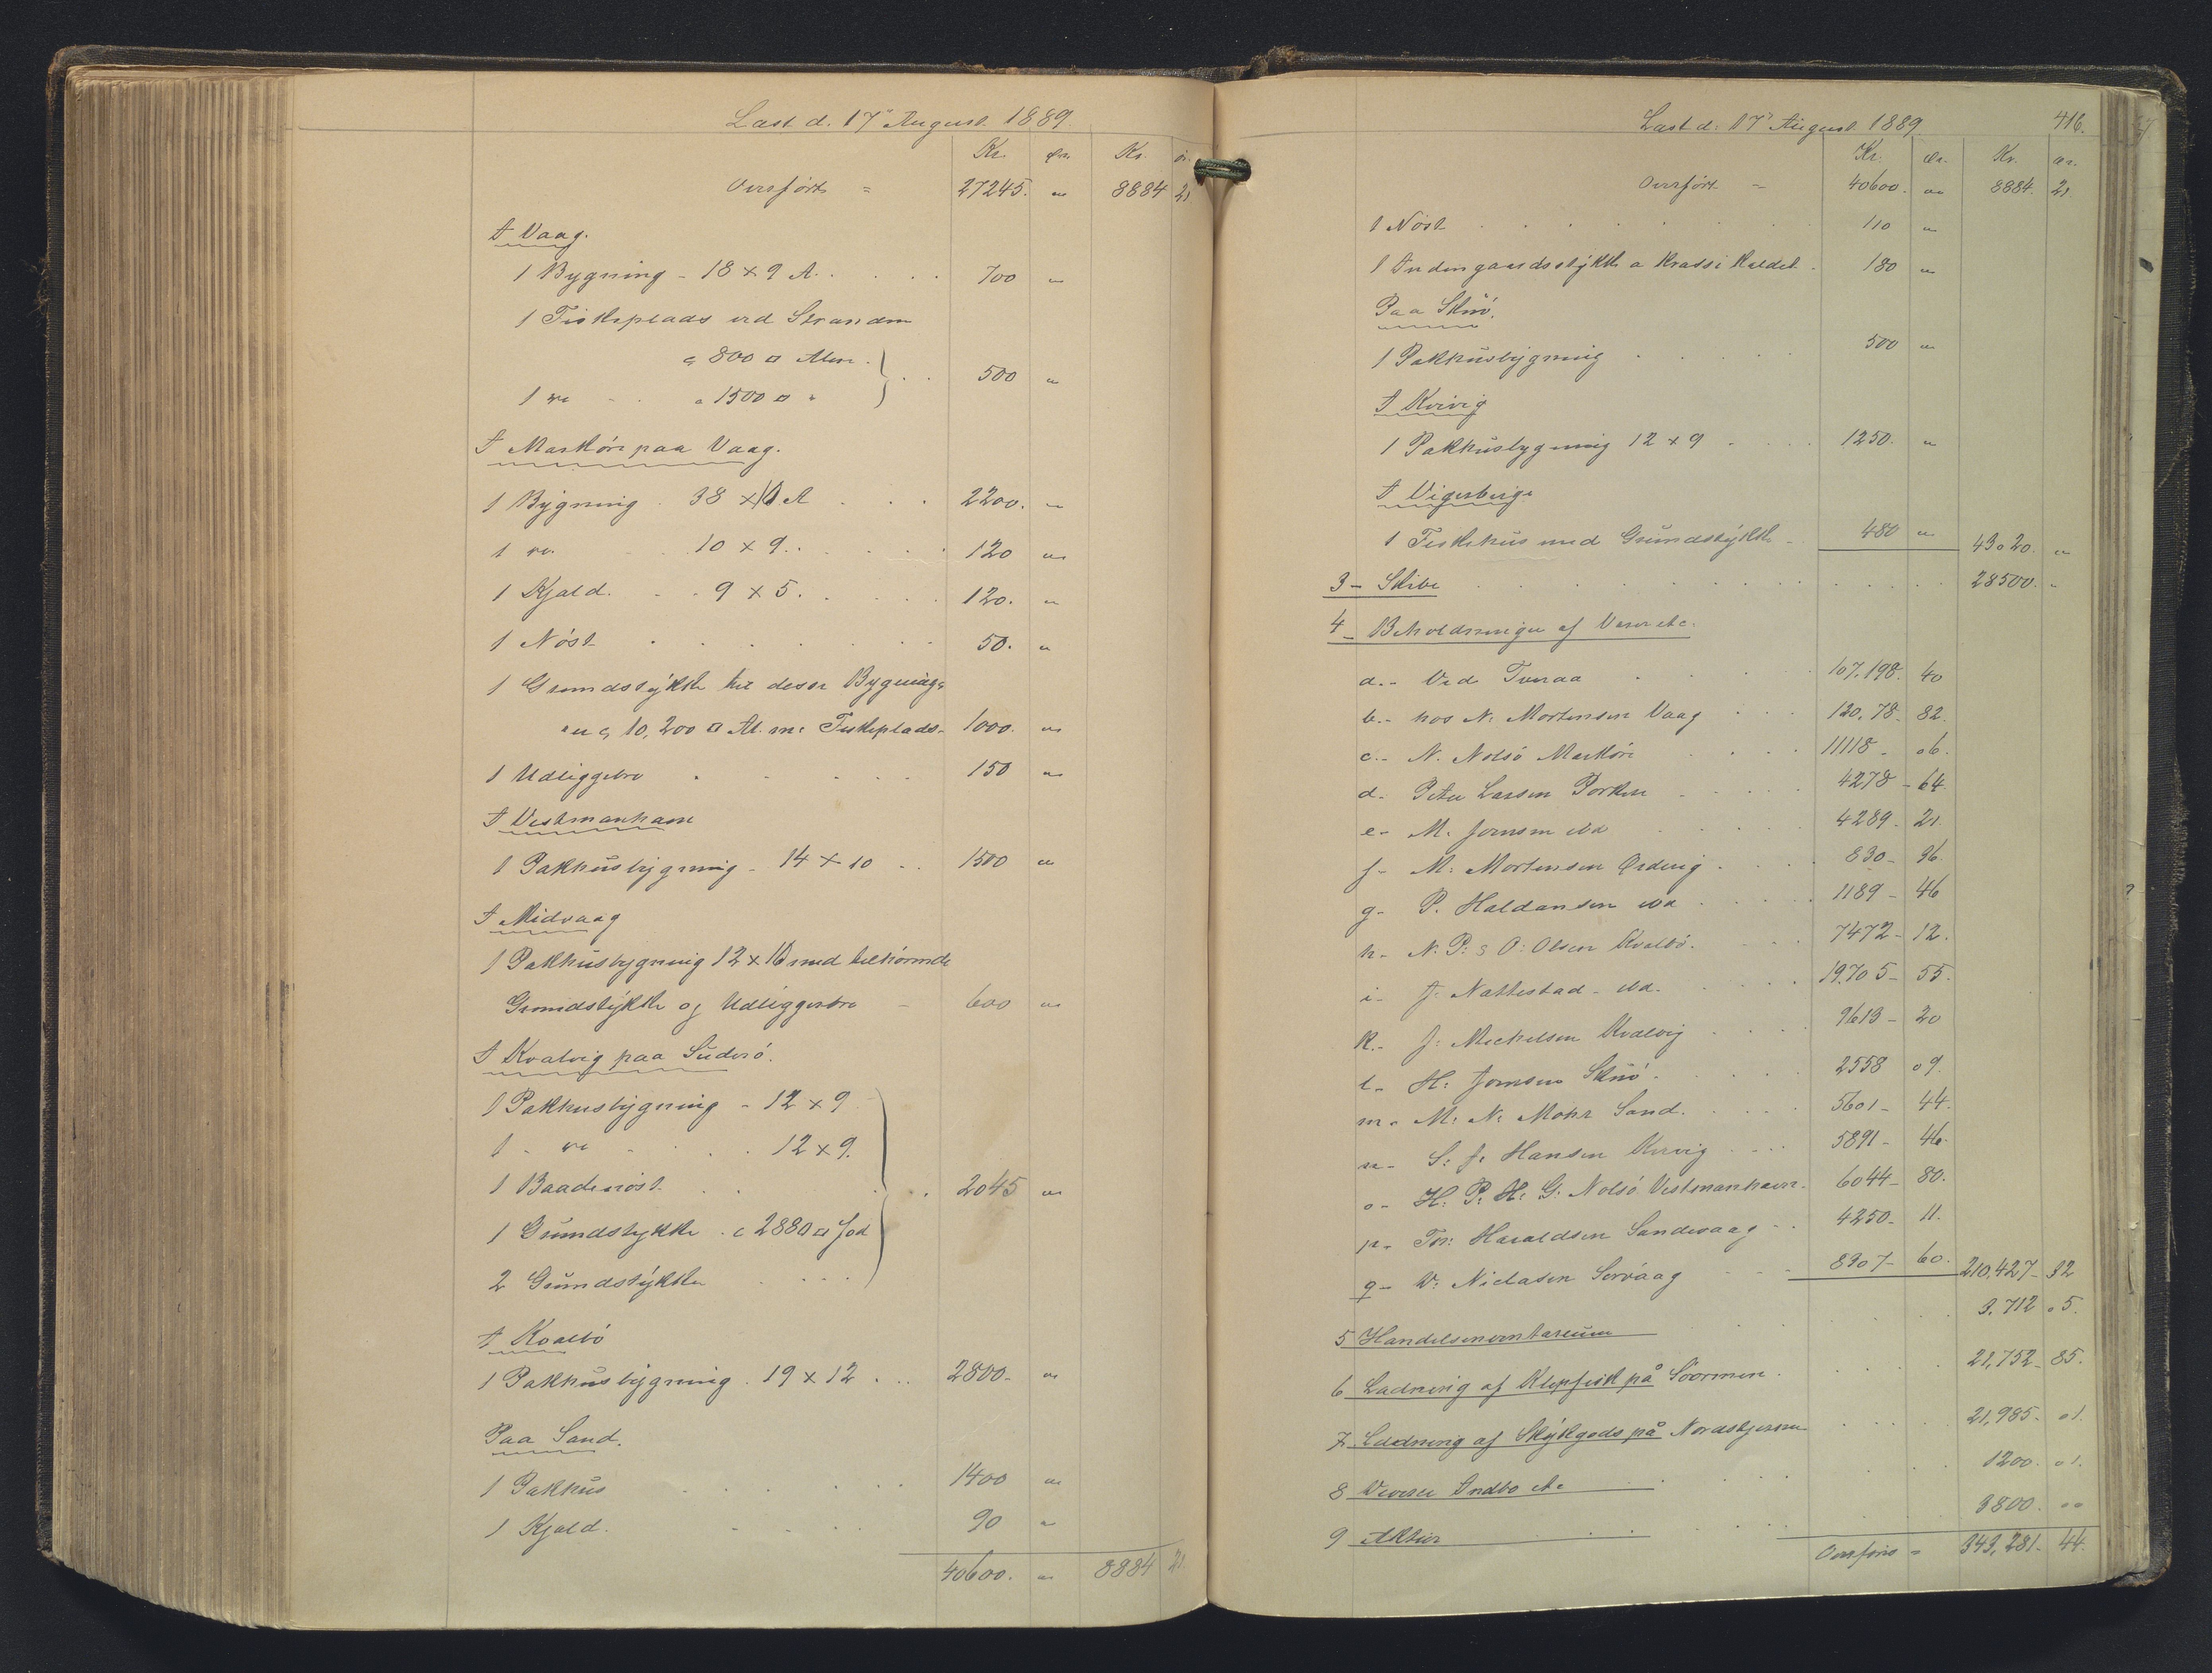 Last d. 17 August 1889.
Kr. Ør. Kr. ør.
Overført = 27245. " 8884 21
I Vaag.
1 Bygning - 18 x 9 A. . . . . 700 "
1 Fiskeplads ved Stranden
c 800 □ Alen .
1 do - . c 1500 □ " } . . 500 "
I Marköre paa Vaag.
1 Bygning . 38 x 10 A . . . 2200. "
1 do. . . 10 x 9. . . . . . 120 "
1 Kjald. . . 9 x 5. . . . . 120. "
1 Nöst . . . . . . . 50. "
1 Grundstykke til disse Bygning-
er c 10,200 □ Al. m: Fiskeplads - 1000. "
1 Udliggebro . . . . . 150 "
I Vestmanhavn
1 Pakhusbygning - 14 x 10 . . 1500 "
I Midvaag
1 Pakhusbygning 12 x 10 med tilhörende
Grundstykke og Udliggerbro - 600 "
I Kvalvig paa Suderö.
1 Pakhusbygning - 12 x 9
1 - do - . . . 12 x 9.
1 Baadenöst. . . . . 2045 "
1 Grundstykke . c 2880 □ Fod
2 Grundstykker . . . .
I Kvalbö
1 Pakhusbygning . 19 x 12 . . . 2800 - "
Paa Sand.
1 Pakhus . . . . . . 1400 "
1 Kjald. . . . . 90 "
40600. " 8884 21
Last d: 17 August 1889. 416.
Kr. Ør. Kr. ør.
Overført - 40600. " 8884. 21.
1 Nöst . . . . . . . 110 "
1 Indengaardsstykke a Krassi kaldet . 180 "
Paa Skuö.
1 Pakhusbygning . . . . . 500 "
I Kvivig
1 Pakhusbygning 12 x 9 . . . . 1250. "
I Vigerbirge
1 Fiskehus med Grundstykke - 480 " 43020. "
3 - Skibe . . . . . . . 28500. "
4 - Beholdninger af Varer etc.
a. - Ved Tveraa . . . 107,198. 40
b. - hos N. Mortensen Vaag . . . 120,78. 82.
c. - N. Nolsö Marköre . . . . 11118 - 06.
d. Peter Larsen Porkere - . . . . 4278 - 64.
e - M. Joensen ibd . . . . 4289 - 21.
f - M. Mortensen Ördevig . . . . 830 - 96.
g - P. Haldansen ibd . . . . . 1189 - 46
h - N. P: & O: Olsen Kvalbö. . . . 7472 - 12.
i - J. Nattestad - ibd. . . . . . 19,705 - 55.
k. - J: Michelsen Kvalvig . . . . 9613 - 20
l - H: Joensen Skuö . . . . . 2558 09.
m. M: N: Mohr Sand. . . . . 5601 - 44.
n - S: J. Hansen Kvivig . . . . 5891 - 46.
o - H. P. H. G: Nolsö Vestmanhavn. 6044 - 80.
p - Tor: Haraldsen Sandevaag - . . 4250 - 11.
q - W: Niclasen Sørvaag . . . 8307 - 60. 210,427 - 32
5 Handelsinventarium . . . . 3,712 05.
6 Ladning af Klipfisk på Svormen . . . . 21,752 - 85.
7. Ladning af Stykgods på Nordstjernen . . . . 21,985 - 01.
8 Diverse Indbo etc . . . . 1200. 01.
9 Aktier . . . . 3800. 00
Overføres = 343,281. 44.